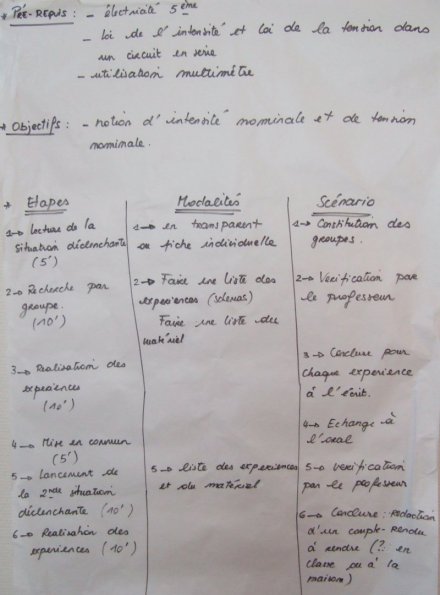 * PRÉ-REQUIS : - électricité 5ème
- loi de l'intensité et loi de la tension dans
un circuit en série
- utilisation multimètre
* Objectifs : - notion d'intensité nominale et de tension
nominale.
* Etapes
1 → lecture de la
situation déclenchante
(5')
2 → Recherche par
groupe.
(10')
3 → Réalisation des
expériences
(10')
4 → Mise en commun
(5')
5 → Lancement de
la 2nde situation
déclenchante (10')
6 → Réalisation des
expériences (10')
Modalités
1 → en transparent
ou fiche individuelle
2 → Faire une liste des
expériences (schémas)
Faire une liste du
matériel
5 → liste des expériences
et du matériel
Scénario
1 → Constitution des
groupes.
2 → Vérification par
le professeur
3 → Conclure pour
chaque expérience
à l'écrit.
4 → Echange à
l'oral
5 → vérification
par le professeur
6 → Conclure : rédaction
d'un compte-rendu
à rendre (?: en
classe ou à la
maison)